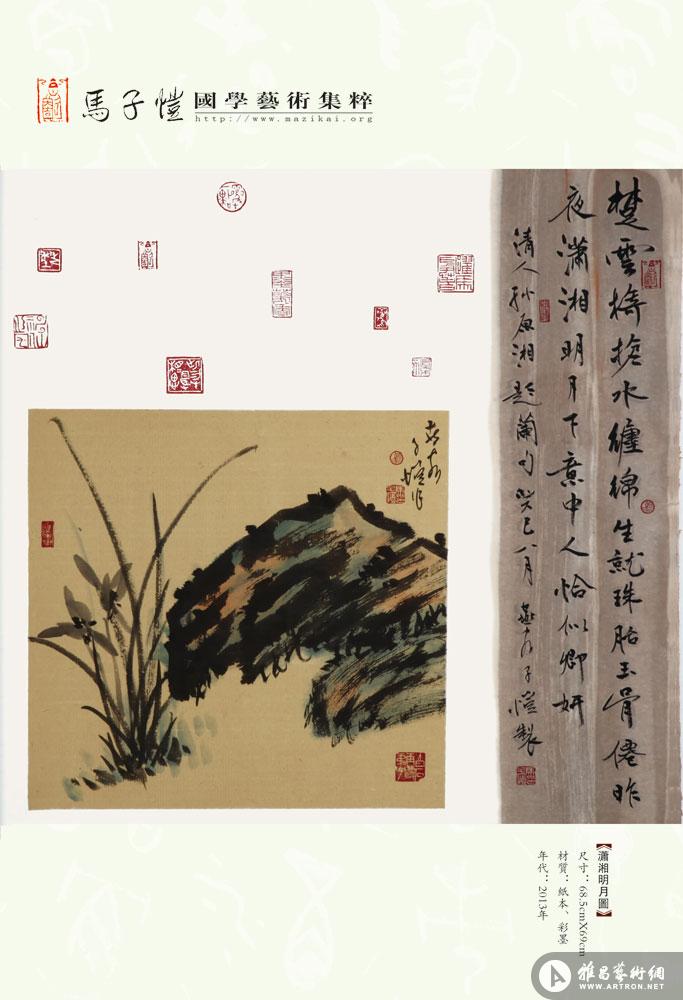 馬子愷 國學藝術集粹
http://www.mazikai.org
楚雲旖旎水纏綿生就珠胎玉骨僊昨
夜瀟湘明月下意中人恰似卿妍
清人孙原湘題蘭句 癸巳八月 子愷製
子愷作
《瀟湘明月圖》
尺寸：68.5cmX69cm
材質：紙本、彩墨
年代：2013年
雅昌藝術網
WWW.ARTRON.NET